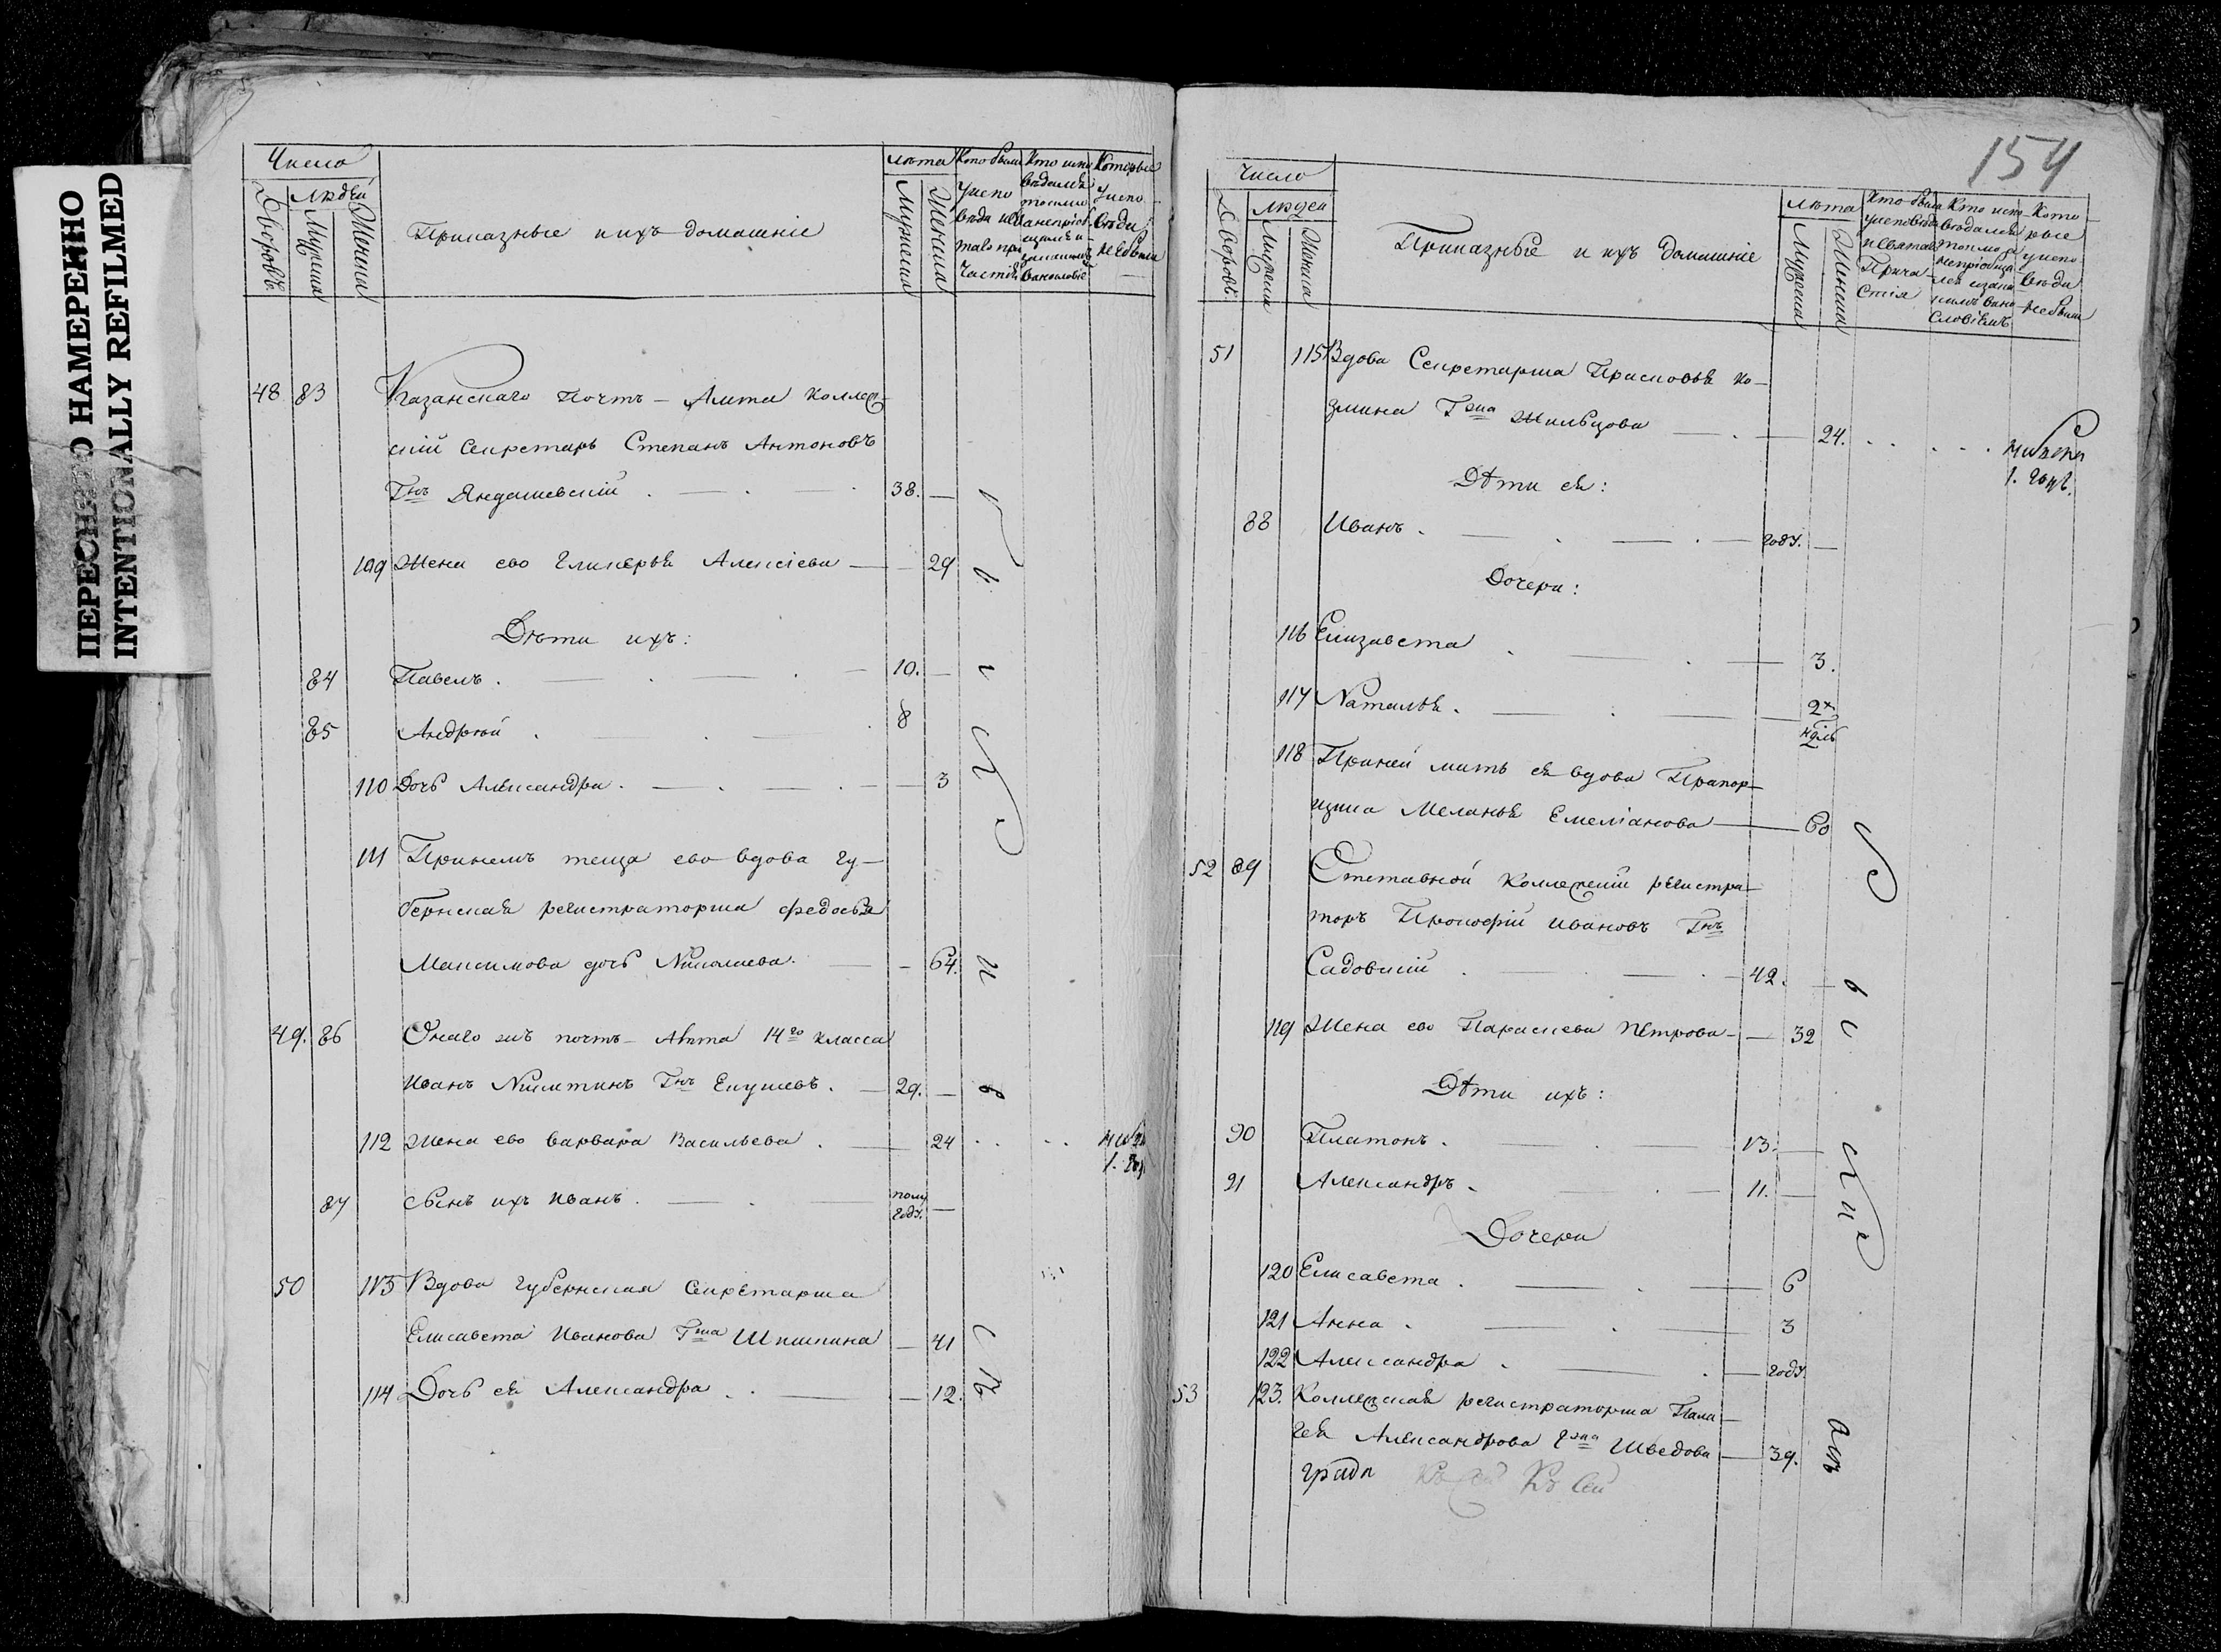 ПЕРЕСНЯТО НАМЕРЕННО
INTENTIONALLY REFILMED
Число
Дворовъ
Людей
Мужеска
Женска
Приказные и ихъ домашніе
Лѣта
Мужеска
Женска
Кто были
Которые
у испо
вѣди
не были
48 83 Казанскаго Почтъ-Амта Коллеж-
скій Секретарь Степанъ Антоновъ
Гнъ Яндашевскій 38.
109 Жена ево Гликерья Алексіева 29
Дѣти ихъ:
84 Павелъ 10.
85 Андрей 8
110 Дочь Александра 3
111 При немъ теща ево вдова гу-
бернская регистраторша Федосья
Максимова дочь Николаева 64.
49. 86 Онаго жъ почтъ-Амта 14го класса
Иванъ Никитинъ Гнъ Екушевъ 29.
112 Жена ево Варвара Васильева 24
1.
87 Сынъ ихъ Иванъ полу
году.
50 113 Вдова Губернская Секретарша
Елисавета Иванова Гжа Шишкина 41
114 Дочь ея Александра 12.
154
Число
Дворовъ
Людей
Мужеска
Женска
Приказные и ихъ домашніе
Лѣта
Мужеска
Женска
Кто были
у исповѣди
и святаго
Прича-
стія
Кото-
рые
у испо-
вѣди
не были
51 115 Вдова Секретарша Прасковья Ко-
змина Гжа Жильцова 24.
1.
Дѣти ея:
88 Иванъ году.
Дочери:
116 Елизавета 3.
117 Наталья 2х
нѣдѣль
118 При ней мать ея вдова Прапор-
щица Меланья Емеліанова 60
52 89 Отставной Коллежскій регистра-
торъ Прокофій Ивановъ Гнъ
Садовскій 42.
119 Жена ево Параскева Петрова 32
Дѣти ихъ:
90 Платонъ 13.
91 Александръ 11.
Дочери
120 Елисавета 6
121 Анна 3
122 Александра году
53 123. Коллежская регистраторша Пала-
гея Александрова Гжа Шведова 39.